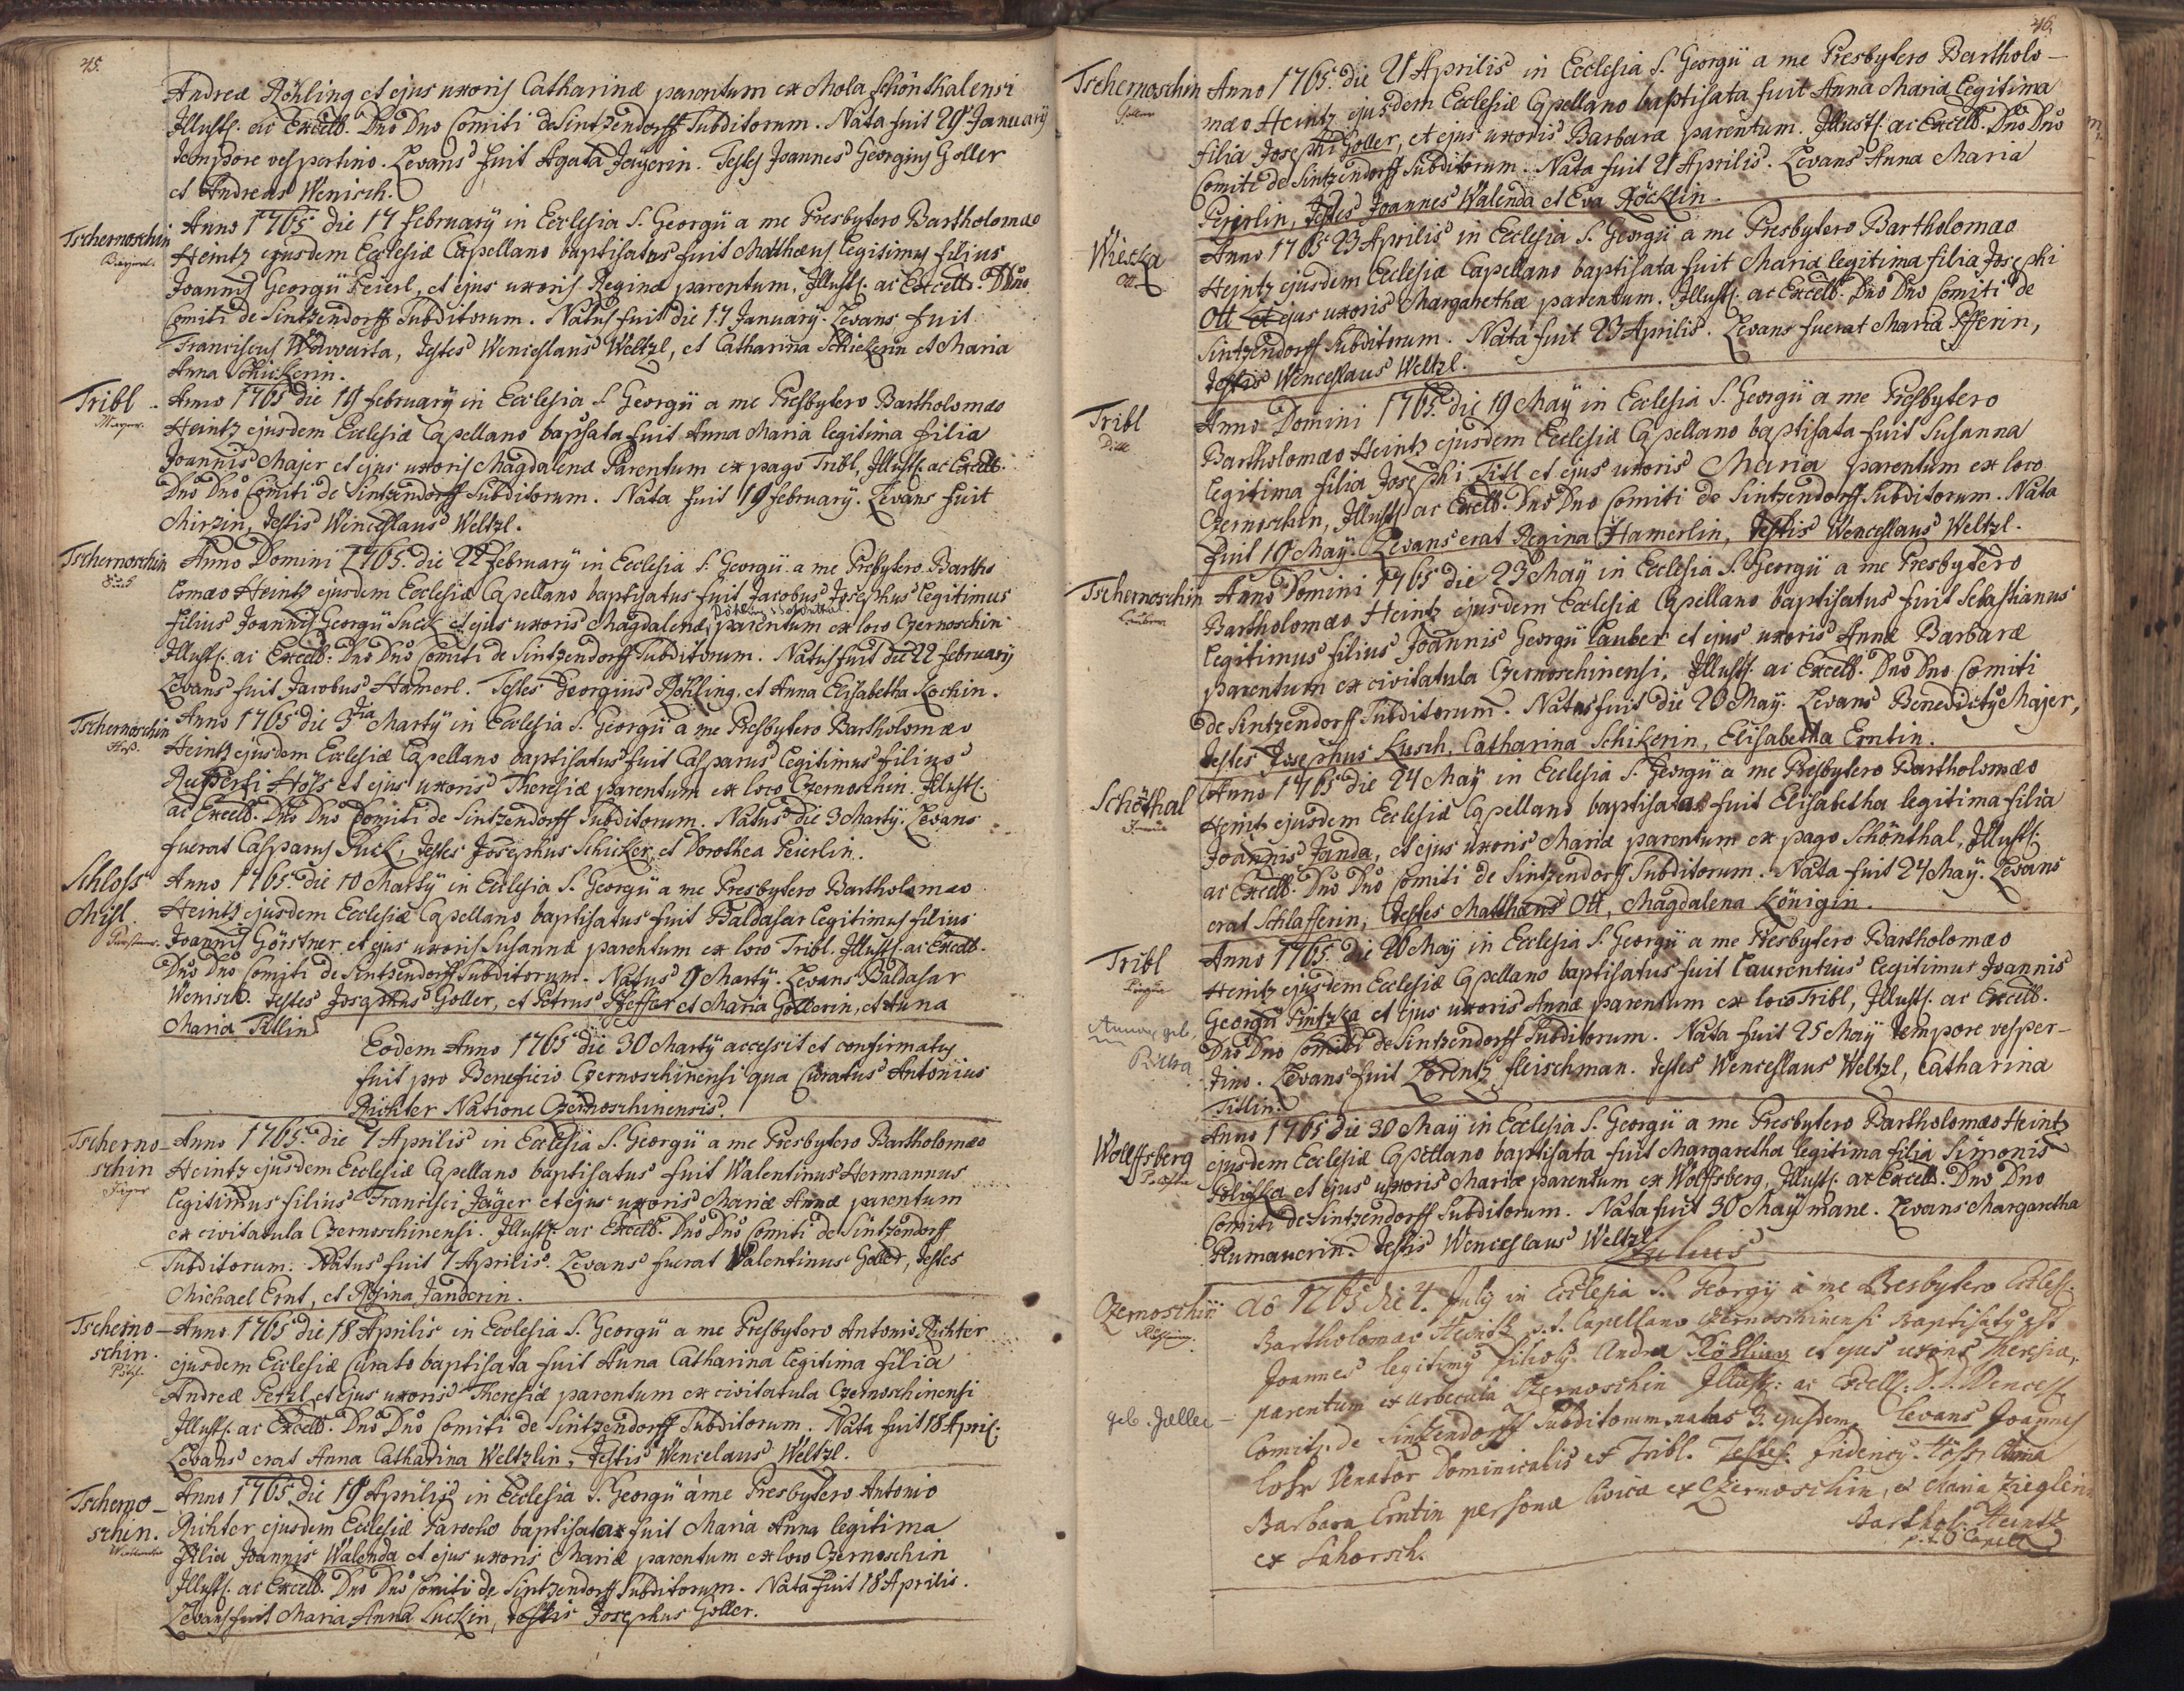 45.
Andreæ Röhling et ejus uxoris Catharinæ parentum ex Mola Schönthalensi
Illustſ. ac Excell. Dño Dño Comiti de Sintzendorff Subditorum. Nata fuit 29 January
tempore vespertino. Levans fuit Agata Jeÿerin. Testes Joannes Georgius Goller
et Andreas Wenisch.
Tschernoschin Anno 1765 die 17 February in Ecclesia S. Georgii a me Presbytero Bartholomæo
Heintz ejusdem Ecclesiæ Capellano baptisatus fuit Matthæus legitimus filius
Joannis Georgii Peierl, et ejus uxoris Reginæ parentum, Illustſ. ac Excell. Dño
Comiti de Sintzendorff Subditorum. Natus fuit die 17 January. Levans fuit
Franciscus Wawurta, Testes Wenceslaus Weltzl, et Catharina Schickerin et Maria
Anna Schickerin.
Tribl Anno 1765 die 19 february in Ecclesia S. Georgii a me Presbytero Bartholomæo
Mayer. Heintz ejusdem Ecclesiæ Capellano baptisata fuit Anna Maria legitima filia
Joannis Majer et ejus uxoris Magdalenæ Parentum ex pago Tribl, Illustſ. ac Excell.
Dño Dño Comiti de Sintzendorff Subditorum. Nata fuit 19 february. Levans fuit
Mirzin, Testis Wenceslaus Weltzl.
Tschernoschin Anno Domini 1765 die 22 february in Ecclesia S. Georgii a me Presbytero Bartho
lomæo Heintz ejusdem Ecclesiæ Capellano baptisatus fuit Jacobus Josephus Legitimus
filius Joannis Georgii Suck et ejus uxoris Magdalenæ parentum ex loco Czernoschin
Illustſ. ac Excell. Dño Dño Comiti de Sintzendorff Subditorum. Natus fuit die 22 february
Levans fuit Jacobus Hamerl. Testes Georgius Röhling, et Anna Elisabetha Kochin.
Tschernoschin Anno 1765 die 3tia Martÿ in Ecclesia S. Georgii a me Presbytero Bartholomæo
Höß. Heintz ejusdem Ecclesiæ Capellano baptisatus fuit Casparus Legitimus filius
Rupperti Höss et ejus uxoris Theresiæ parentum ex loco Czernoschin. Illustſ.
ac Excell. Dño Dño Comiti de Sintzendorff Subditorum. Natus die 3 Martÿ. Levans
fuerat Casparus Suck, Testes Josephus Schicker, et Dorothea Peierlin.
Schloss Anno 1765 die 10 Martÿ in Ecclesia S. Georgii a me Presbytero Bartholomæo
Misl. Heintz ejusdem Ecclesiæ Capellano baptisatus fuit Baldasar legitimus filius
Joannis Görstner et ejus uxoris Susannæ parentum ex loco Tribl. Illustſ. ac Excell.
Dño Dño Comiti de Sintzendorff Subditorum. Natus 9 Martÿ. Levans Baldasar
Wenisch. Testes Josephus Goller, et Petrus Pfeffer et Maria Gollerin, et Anna
Maria Titlin
Eodem Anno 1765 die 30 Martÿ accessit et confirmatus
fuit pro Beneficio Czernoschinensi qua Curatus Antonius
Richter Natione Czernoschinensis.
Tscherno- Anno 1765 die 7 Aprilis in Ecclesia S. Georgii a me Presbytero Bartholomæo
schin Heintz ejusdem Ecclesiæ Capellano baptisatus fuit Walentinus Hermannus
Jäger legitimus filius Francisci Jäger et ejus uxoris Mariæ Annæ parentum
ex civitatula Czernoschinensi. Illustſ. ac Excell. Dño Dño Comiti de Sintzendorff
Subditorum. Natus fuit 7 Aprilis. Levans fuerat Walentinus Goller, Testes
Michael Ernt, et Rosina Janderin.
Tscherno- Anno 1765 die 18 Aprilis in Ecclesia S. Georgii a me Presbytero Antonio Richter
schin. ejusdem Ecclesiæ Curato baptisata fuit Anna Catharina legitima filia
Pötzl. Andreæ Petzl et ejus uxoris Theresiæ parentum ex civitatula Czernoschinensi
Illustſ. ac Excell. Dño Dño Comiti de Sintzendorff Subditorum. Nata fuit 18 April.
Levans erat Anna Catharina Weltzlin, Testis Wencelaus Weltzl.
Tscherno- Anno 1765 die 19 Aprilis in Ecclesia S. Georgii à me Presbytero Antonio
schin. Richter ejusdem Ecclesiæ Parocho baptisata fuit Maria Anna legitima
filia Joannis Walenda et ejus uxoris Mariæ parentum ex loco Czernoschin
Illustſ. ac Excell. Dño Dño Comiti de Sintzendorff Subditorum. Nata fuit 18 Aprilis.
Levans fuit Maria Anna Suckin, Testis Josephus Goller.
46.
Tschernoschin Anno 1765 die 21 Aprilis in Ecclesia S. Georgii a me Presbytero Bartholo-
Goller mæo Heintz ejusdem Ecclesiæ Capellano baptisata fuit Anna Maria legitima
filia Josephi Goller, et ejus uxoris Barbaræ parentum. Illustſ. ac Excell. Dño Dño
Comiti de Sintzendorff Subditorum. Nata fuit 21 Aprilis. Levans Anna Maria
Pejerlin, Testes Joannes Walenda et Eva Röcklin.
Wiezka Anno 1765 23 Aprilis in Ecclesia S. Georgii a me Presbytero Bartholomæo
Ott Heintz ejusdem Ecclesiæ Capellano baptisata fuit Maria legitima filia Josephi
Ott et ejus uxoris Margarethæ parentum. Illustſ. ac Excell. Dño Dño Comiti de
Sintzendorff Subditorum. Nata fuit 23 Aprilis. Levans fuerat Maria Pfferin,
Testis Wenceslaus Weltzl.
Tribl Anno Domini 1765 die 19 Maÿ in Ecclesia S. Georgii a me Presbytero
Bartholomæo Heintz ejusdem Ecclesiæ Capellano baptisata fuit Susanna
legitima filia Josephi Titl et ejus uxoris Maria parentum ex loco
Czernoschin, Illustſ. ac Excell. Dño Dño Comiti de Sintzendorff Subditorum. Nata
fuit 18 Maÿ. Levans erat Regina Hamerlin, Testis Wenceslaus Weltzl.
Tschernoschin Anno Domini 1765 die 23 Maÿ in Ecclesia S. Georgii a me Presbytero
Bartholomæo Heintz ejusdem Ecclesiæ Capellano baptisatus fuit Sebastianus
legitimus filius Joannis Georgii Lauber et ejus uxoris Annæ Barbaræ
parentum ex civitatula Czernoschinensi, Illustſ. ac Excell. Dño Dño Comiti
de Sintzendorff Subditorum. Natus fuit die 20 Maÿ. Levans Benedictus Majer,
Testes Josephus Kusch, Catharina Schikerin, Elisabetha Erntin.
Schöthal Anno 1765 die 24 Maÿ in Ecclesia S. Georgii a me Presbytero Bartholomæo
Heintz ejusdem Ecclesiæ Capellano baptisata fuit Elisabetha legitima filia
Joannis Janda, et ejus uxoris Mariæ parentum ex pago Schönthal, Illustſ.
ac Excell. Dño Dño Comiti de Sintzendorff Subditorum. Nata fuit 24 Maÿ. Levans
erat Schlafferin, Testes Matthæus Ott, Magdalena Königin.
Tribl Anno 1765 die 26 Maÿ in Ecclesia S. Georgii a me Presbytero Bartholomæo
Heintz ejusdem Ecclesiæ Capellano baptisatus fuit Laurentius legitimus Joannis
Georgii Sintzka et ejus uxoris Annæ parentum ex loco Tribl, Illustſ. ac Excell.
Dño Dño Comiti de Sintzendorff Subditorum. Nata fuit 25 Maÿ tempore vesper-
tino. Levans fuit Lorentz fleischman. Testes Wenceslaus Weltzl, Catharina
Titlin.
Wolffsberg Anno 1765 die 30 Maÿ in Ecclesia S. Georgii a me Presbytero Bartholomæo Heintz
ejusdem Ecclesiæ Capellano baptisata fuit Margaretha legitima filia Simonis
Polischka et ejus uxoris Mariæ parentum ex Wolfsberg, Illustſ. ac Excell. Dño Dño
Comiti de Sintzendorff Subditorum. Nata fuit 30 Maÿ mane. Levans Margaretha
Plumauerin. Testis Wenceslaus Weltzl.
Julius
Czernoschin aõ 1765 die 4. July in Ecclesia S. Georgÿ à me Presbytero Eccles:
Bartholomæo Heintz p. t. Capellano Czernoschinensi Baptisatus est
Joannes legitimus filiolus Andreæ Röhling et ejus uxoris Theresiæ,
parentum ex urbecula Czernoschin Illustſ: ac Excell: D. D. Wencesſ.
geb. Goller – Comiti de Sintzendorff Subditorum natus 3. ejusdem. Levans Joannes
Lohr Venator Dominicalis ex Tribl. Testes. Höss, Anna
Barbara Erntin personæ civicæ ex Czernoschin, et Maria Zieglerin
ex Lahorsch. Barthol. Heintz